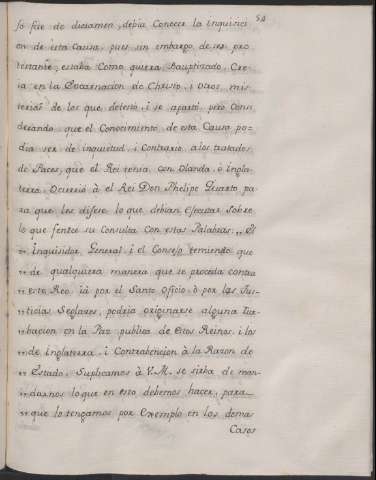 54
so fue de dictamen, debia Conocer la Inquisici
on de esta Causa, pues sin embargo de ser pro
testante, estaba Como quiera Bauptizado, Cre
ia en la Encarnacion de Christo, i otros mis
terios de los que detestò, i se apartò, però Consi
derando que el Conocimiento de esta Causa po
dia ser de inquietud, i Contrario a los tratados
de Paces, que el Rei tenia con Olanda, ò Ingla
terra Ocurriò à el Rei Don Phelipe Quarto pa
ra que les dijese lo que debian Ejecutar Sobre
lo que fenece su Consulta Con estas Palabras: „ El
„ Inquisidor General, i el Consejo temiendo que
„ de qualquiera manera que se proceda contra
„ este Reo ià por el Santo Oficio, ò por las Jus-
„ ticias Seglares, podria originarse alguna tur
„ bacion en la Paz publica de Estos Reinos, i los
„ de Inglaterra, i Contrabencion à la Razon de
„ Estado, Suplicamos à V.M. se sirba de man
„ darnos lo que en esto debemos hacer, para
„ que lo tengamos por Exemplo en los demas
Casos